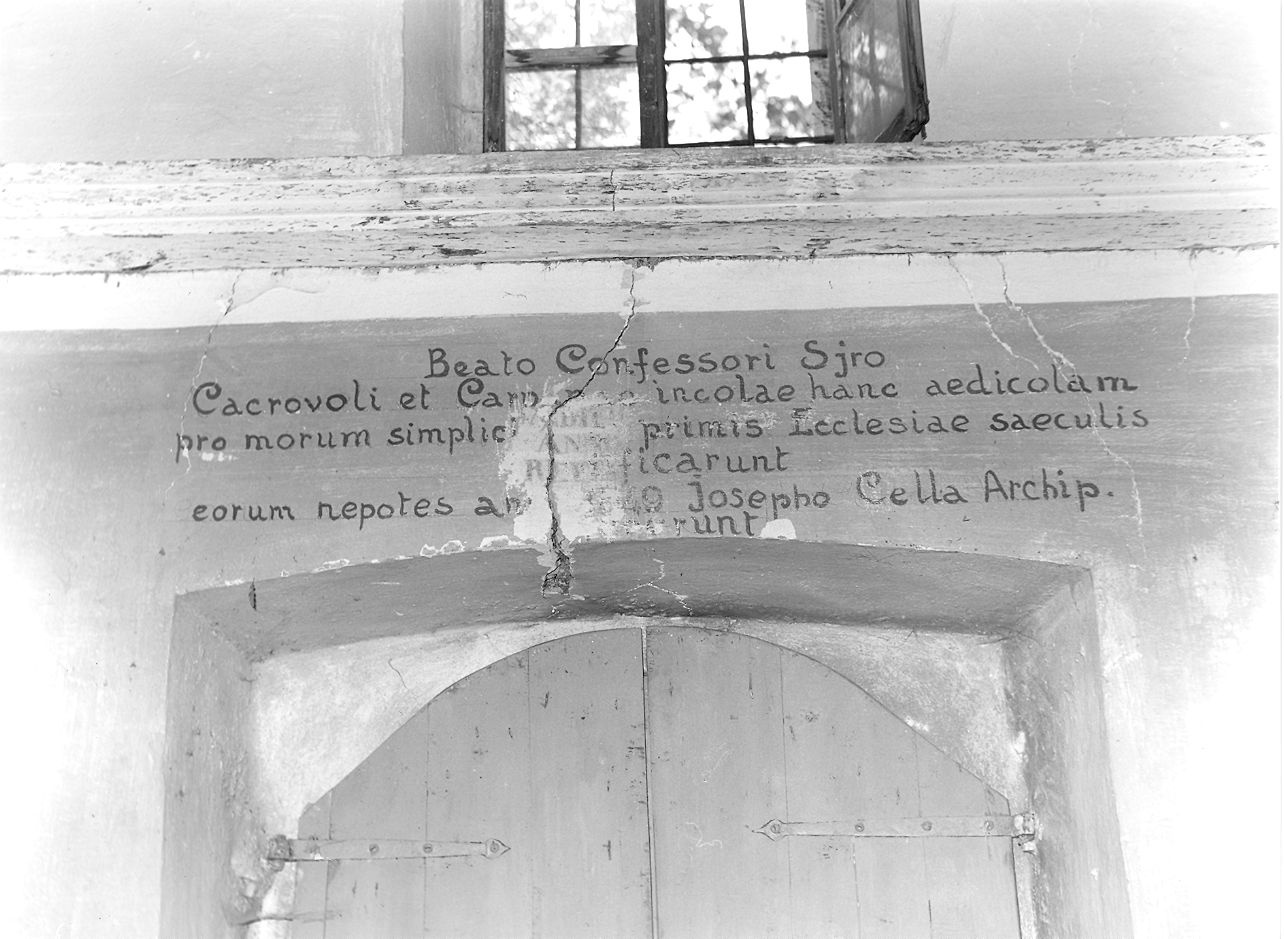 Beato Confessori Sjro
Cacrovoli et incolae hanc aedicolam
pro morum primis Ecclesiae saeculis
eorum nepotes Josepho Cella Archip.